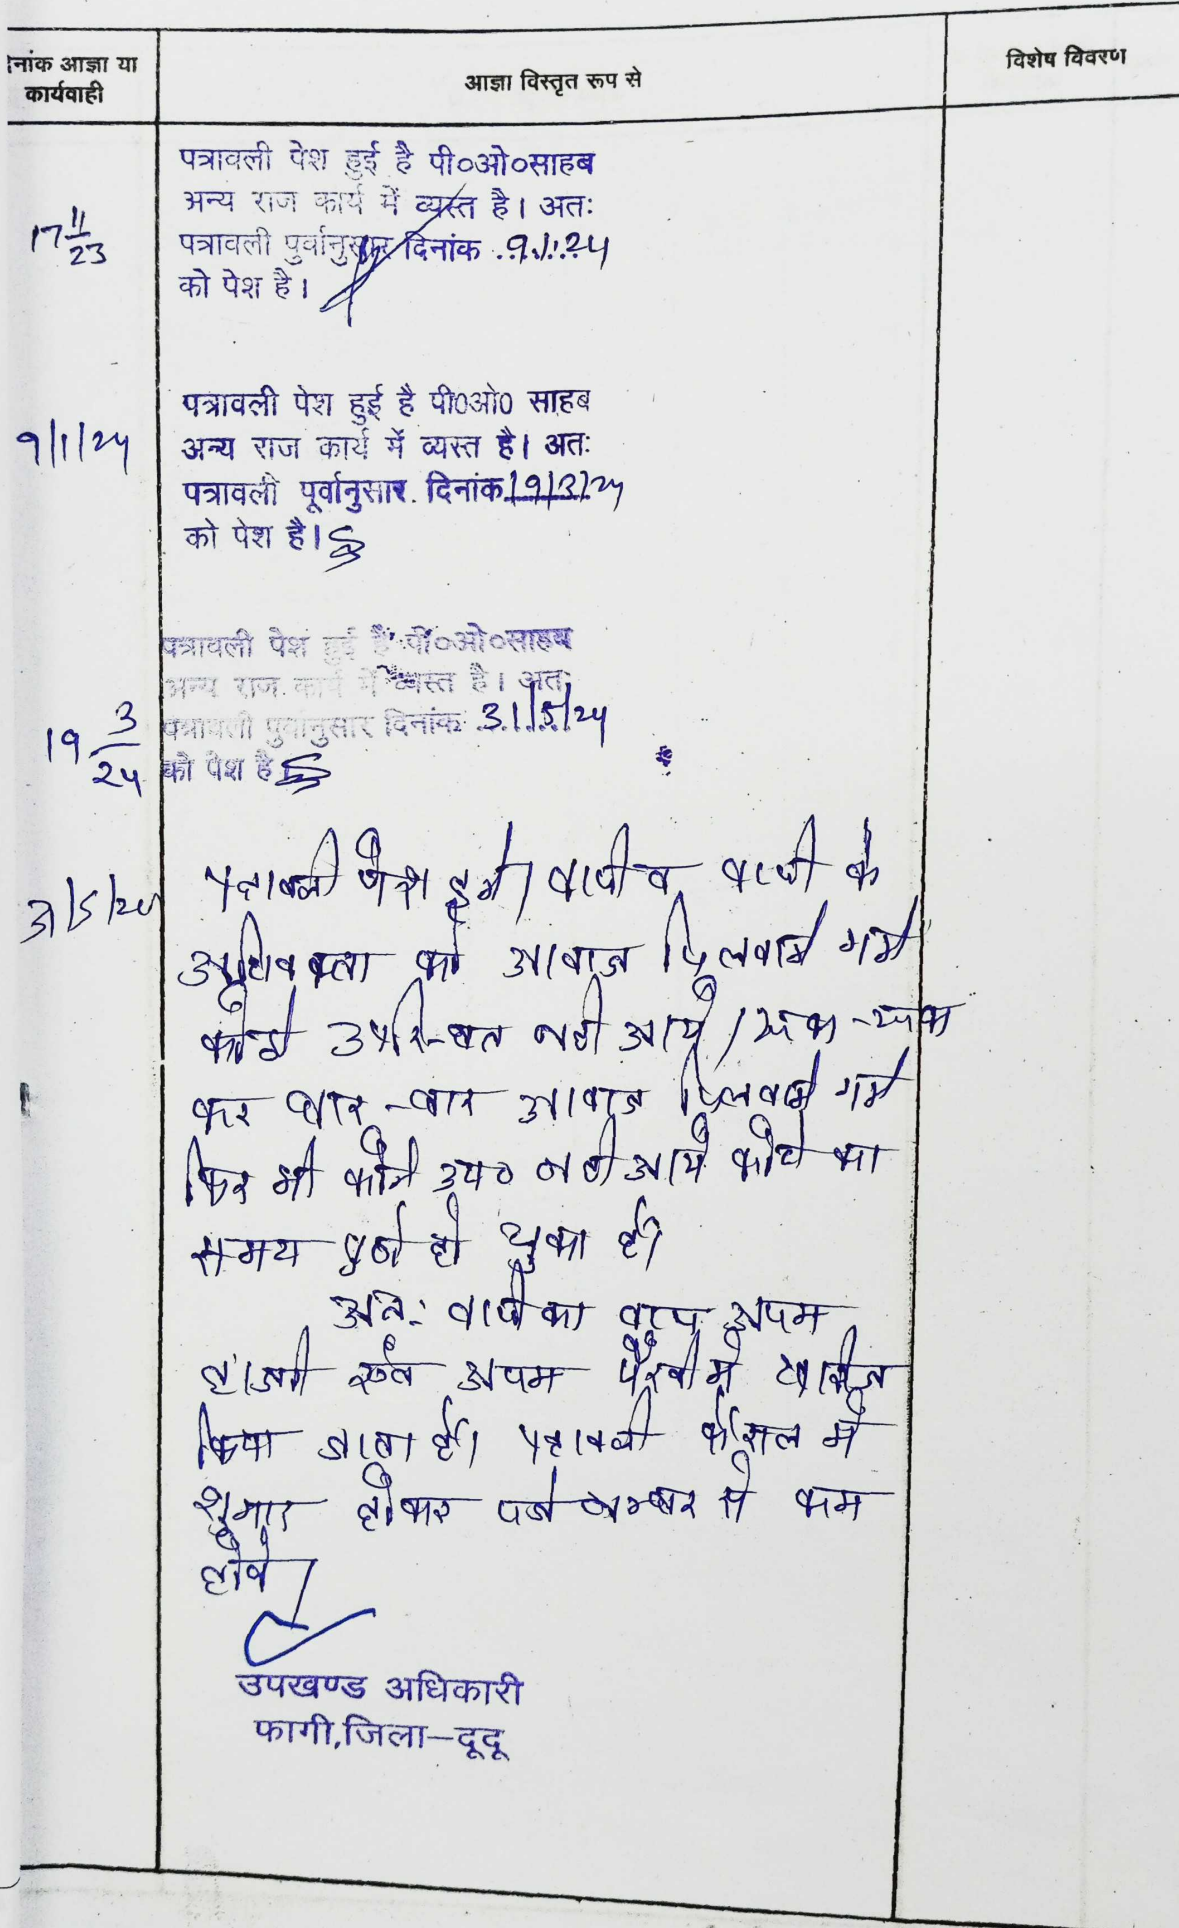 दिनांक आज्ञा या
कार्यवाही
आज्ञा विस्तृत रूप से
विशेष विवरण
17 11/23
पत्रावली पेश हुई है पी०ओ०साहब
अन्य राज कार्य में व्यस्त है। अतः
पत्रावली पुर्वानुसार दिनांक 9.1.24
को पेश है।
9/1/24
पत्रावली पेश हुई है पी0ओ0 साहब
अन्य राज कार्य में व्यस्त है। अतः
पत्रावली पूर्वानुसार दिनांक 19/3/24
को पेश है।
19 3/24
पत्रावली पेश हुई है पी०ओ०साहब
अन्य राज कार्य में व्यस्त है। अतः
पत्रावली पुर्वानुसार दिनांक 31/5/24
को पेश है
31/5/24
पत्रावली पेश हुई। वादी व वादी के
अधिवक्ता को आवाज दिलवाई गई
कोई उपस्थित नही आये। रूक-रूक
कर बार-बार आवाज दिलवाई गई
फिर भी कोई उप० नही आये कोर्ट का
समय पूर्ण हो चुका है।
अतः वादी का वाद अदम
हाजरी एवं अदम पैरवी में खारिज
किया जाता है। पत्रावली फैसल में
शुमार होकर दर्ज नम्बर से कम
होवे।
उपखण्ड अधिकारी
फागी,जिला–दूदू